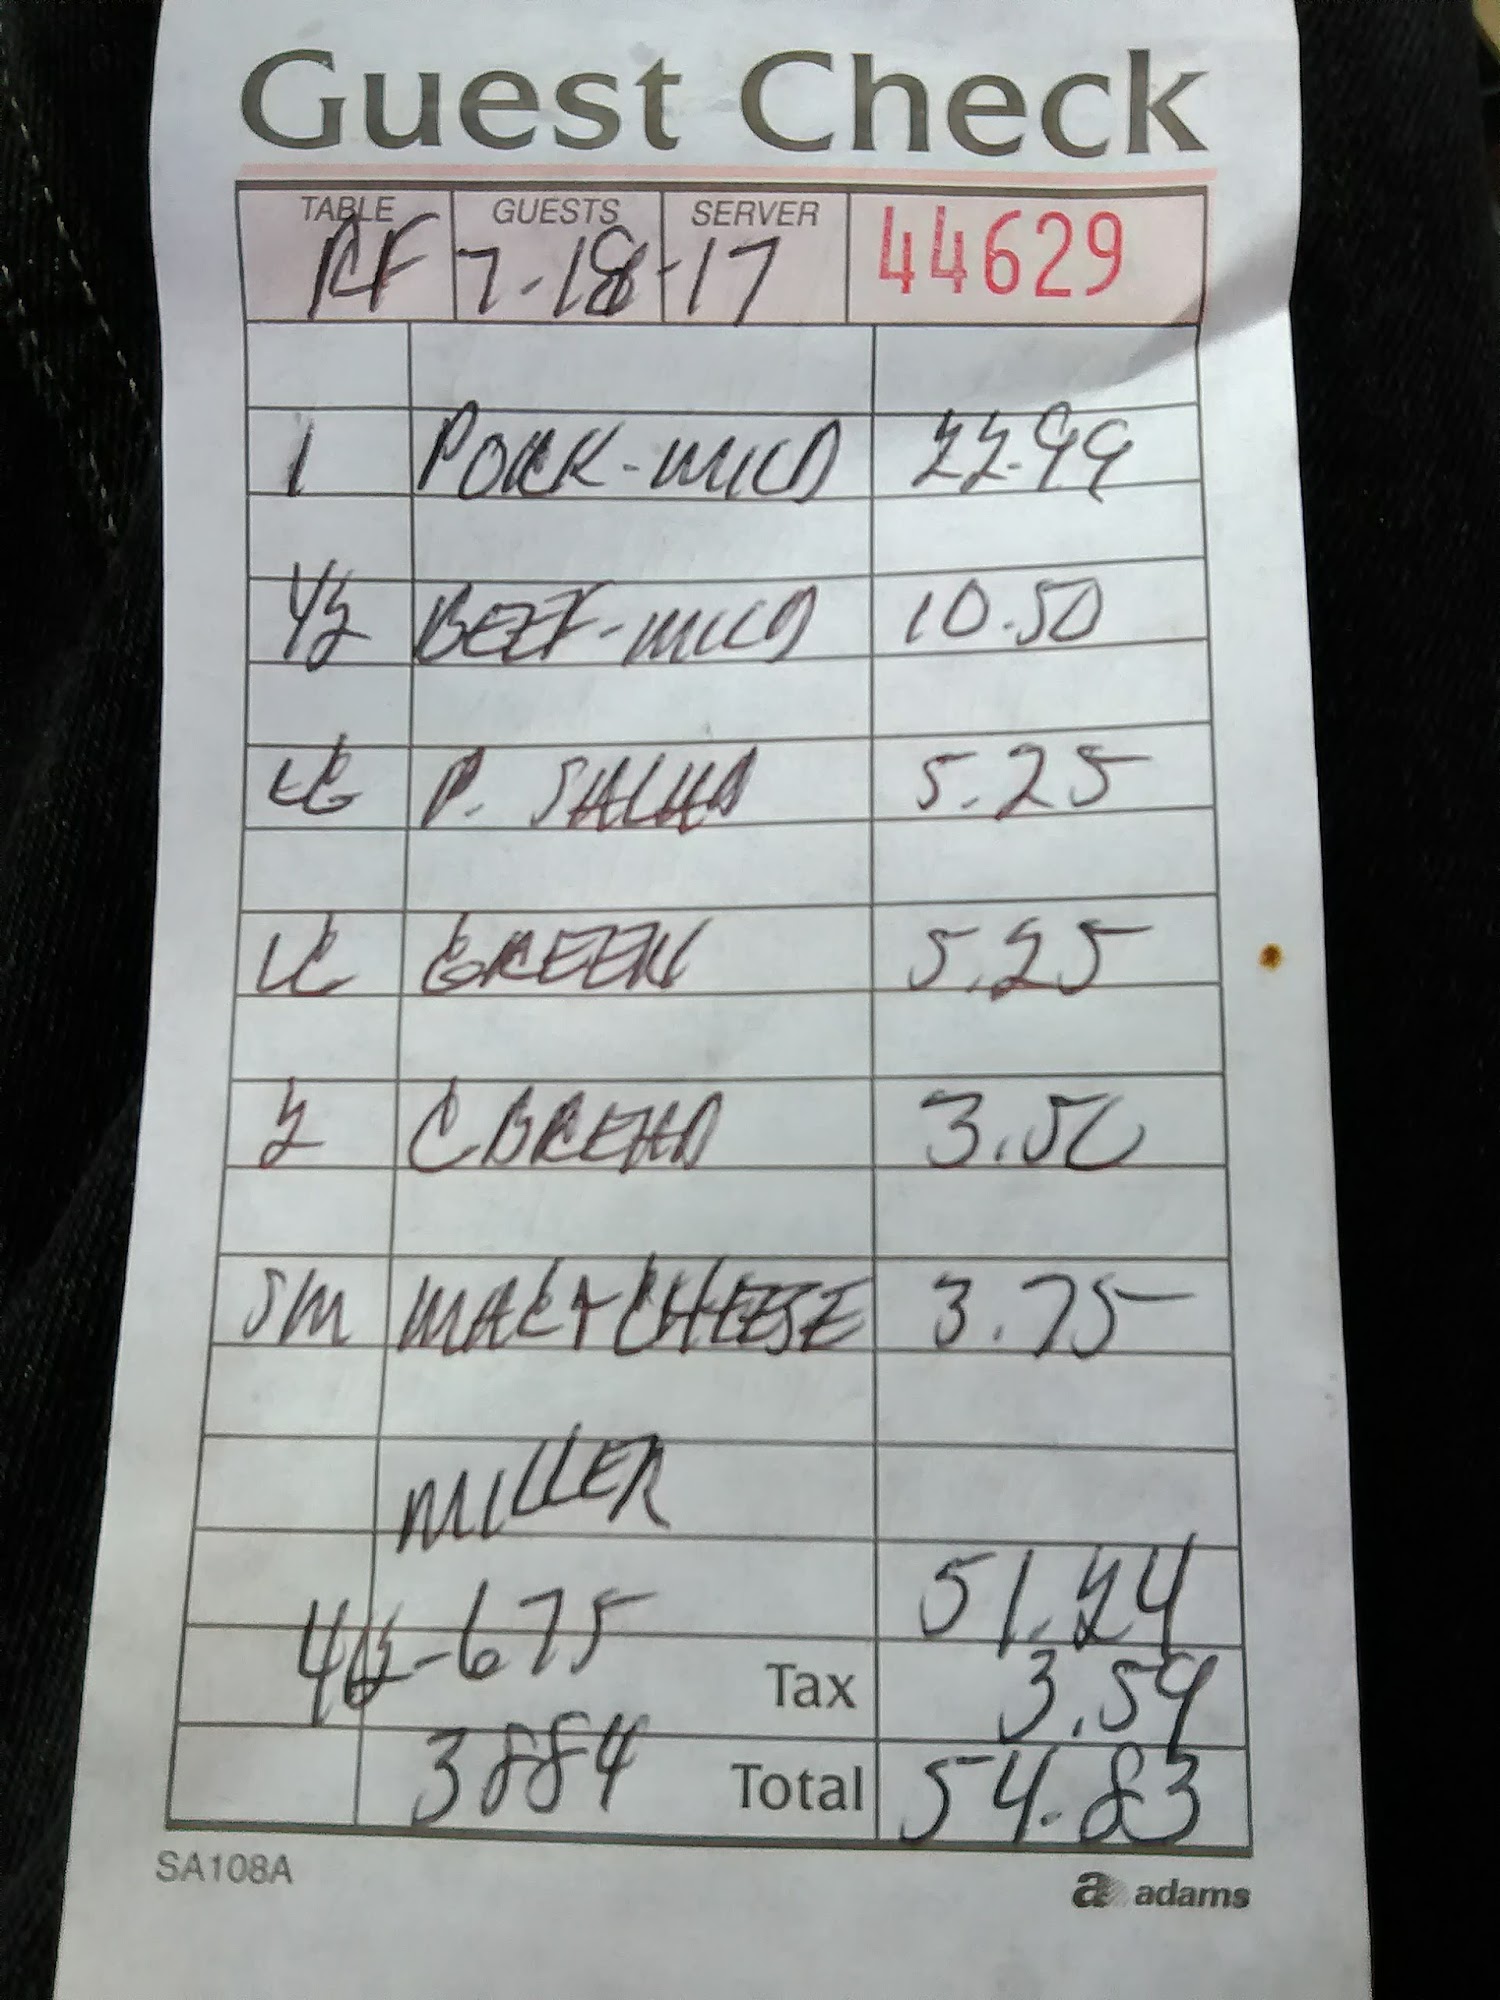 Guest Check
TABLE GUESTS SERVER
RF 7-18-17 44629
1 PORK-MILD 22.99
1/2 BEEF-MILD 10.50
LG P. SALAD 5.25
LG GREEN 5.25
2 C BREAD 3.50
SM MAC+CHEESE 3.75
MILLER
51.24
675
Tax 3.59
3884 Total 54.83
SA108A a adams